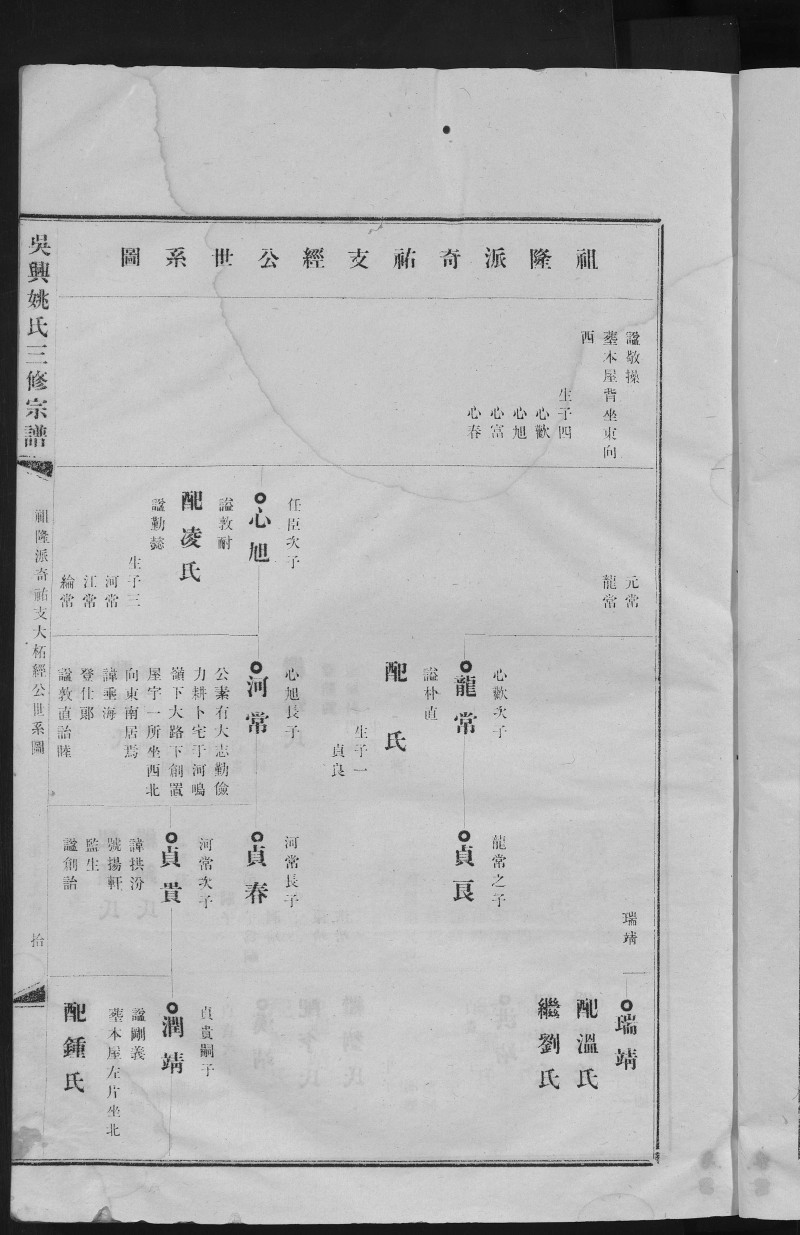 祖隆派奇祐支經公世系圖
諡敬操
塟本屋背坐東向
西
生子四
心歡
心旭
心富
心春
元常
龍常
任臣次子
心旭
諡敦耐
配凌氏
諡勤懿
生子三
河常
江常
綸常
心歡次子
龍常
諡朴直
配 氏
生子一
貞良
心旭長子
河常
公素有大志勤儉
力耕卜宅于河鳴
嶺下大路下創置
屋宇一所坐西北
向東南居焉
諱垂海
登仕郎
諡敦直詒睦
瑞靖
龍常之子
貞良
河常長子
貞春
河常次子
貞貴
諱拱汾
號揚軒
監生
諡創詒
瑞靖
配溫氏
繼劉氏
貞貴嗣子
潤靖
諡剛義
塟本屋左片坐北
配鍾氏
吳興姚氏三修宗譜
祖隆派奇祐支大柘經公世系圖
拾